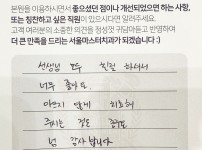 본원을 이용하시면서 좋았던 점이나 개선되었으면 하는 사항,
또는 칭찬하고 싶은 직원이 있으시다면 알려주세요.
고객 여러분의 소중한 의견을 정성껏 귀담아듣고 반영하여
더 큰 만족을 드리는 서울마스터치과가 되겠습니다 :)
선생님 모두 친절 하셔서
너무 좋아요.
아프지 않게 치료해
주시는 것도
넘 감사합니다